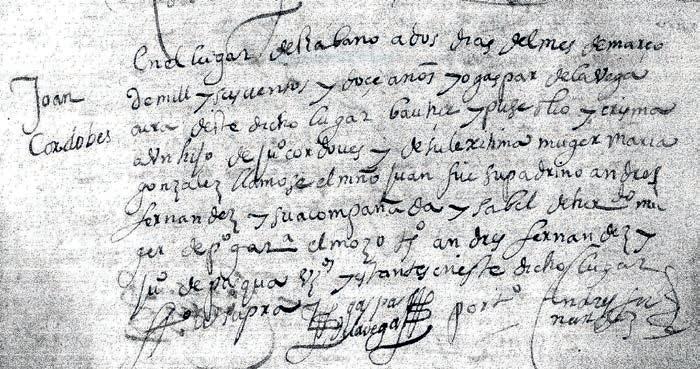 Joan
Cordobes
En el lugar de Rabano a dos dias del mes de março
de mill y seiscientos y doce años yo gaspar de la Vega
cura deste dicho lugar bautice y puse olio y crisma
a Un hijo de juº cordoves y de su lexitima muger maria
gonzalez llamose el niño juan fue su padrino andres
fernandez y su acompañada ysabel de her mu
ger de pº garª el mozo tºˢ andres fernandez y
juº de pasqua vºˢ y estantes en este dicho lugar
fº ut supra gaspar de la vega por tº andres fer
nandez